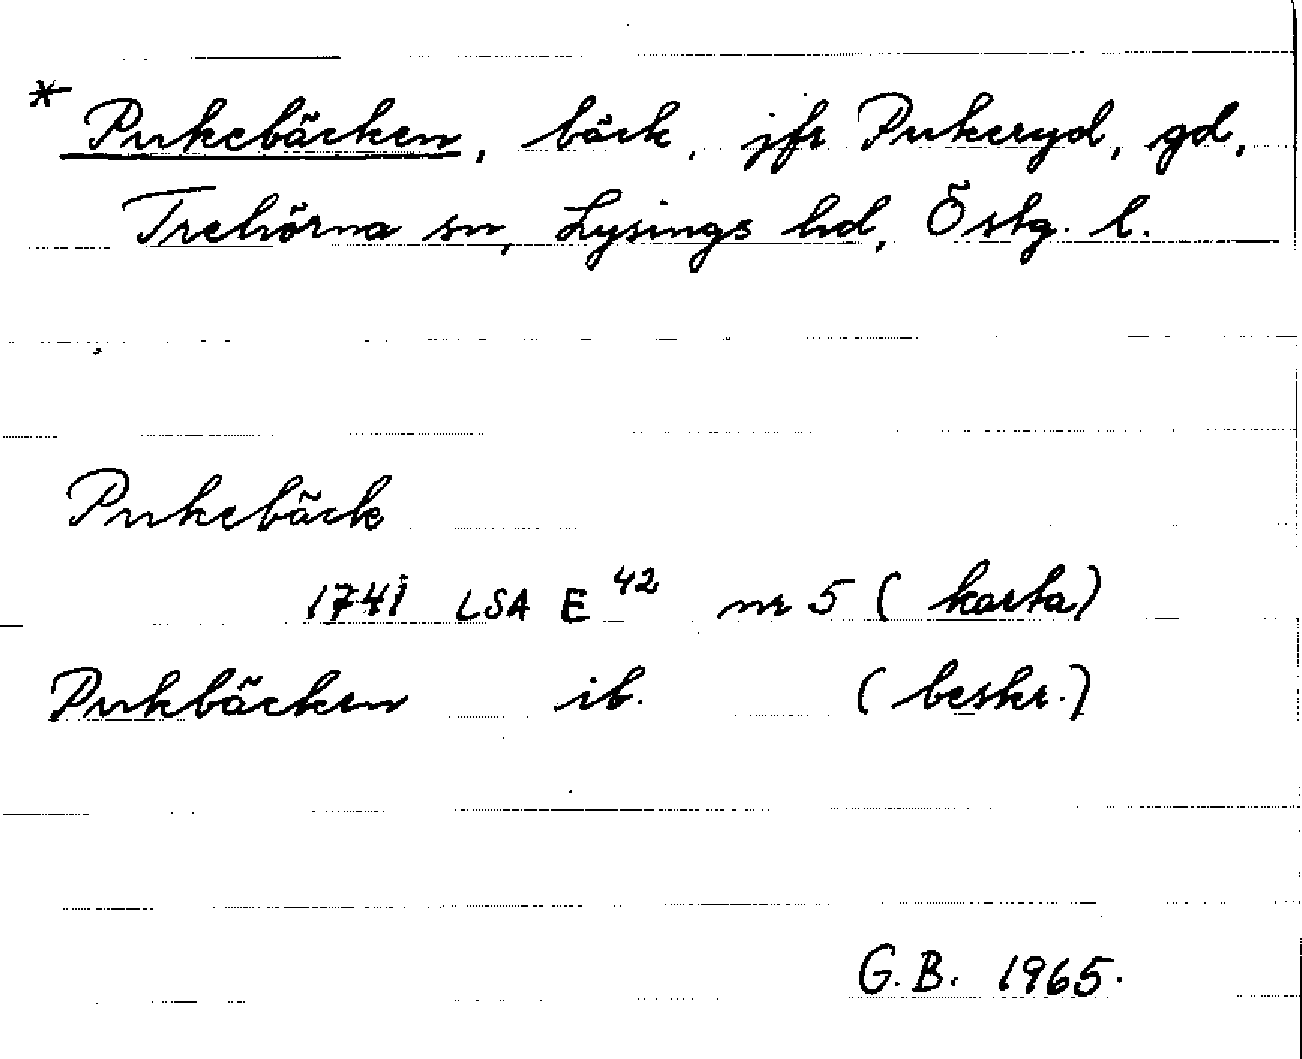 * Pukebäcken, bäck, jfr Pukeryd, gd,
Trehörna sn, Lysings hd, Östg. l.
Pukebäck
1741 LSA E 42 nr 5 (karta)
Pukbäcken ib. (beskr.)
G.B. 1965.